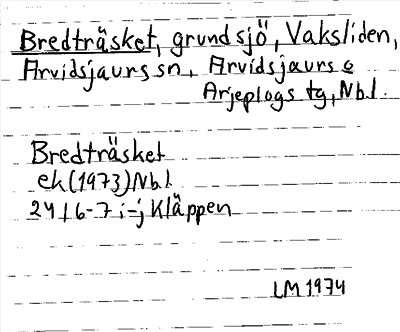 Bredträsket, grund sjö, Vaksliden,
Arvidsjaurs sn, Arvidsjaurs o
Arjeplogs tg, Nbl.
Bredträsket
ek (1973) Nbl.
24 I 6-7 i-j Kläppen
LM 1974